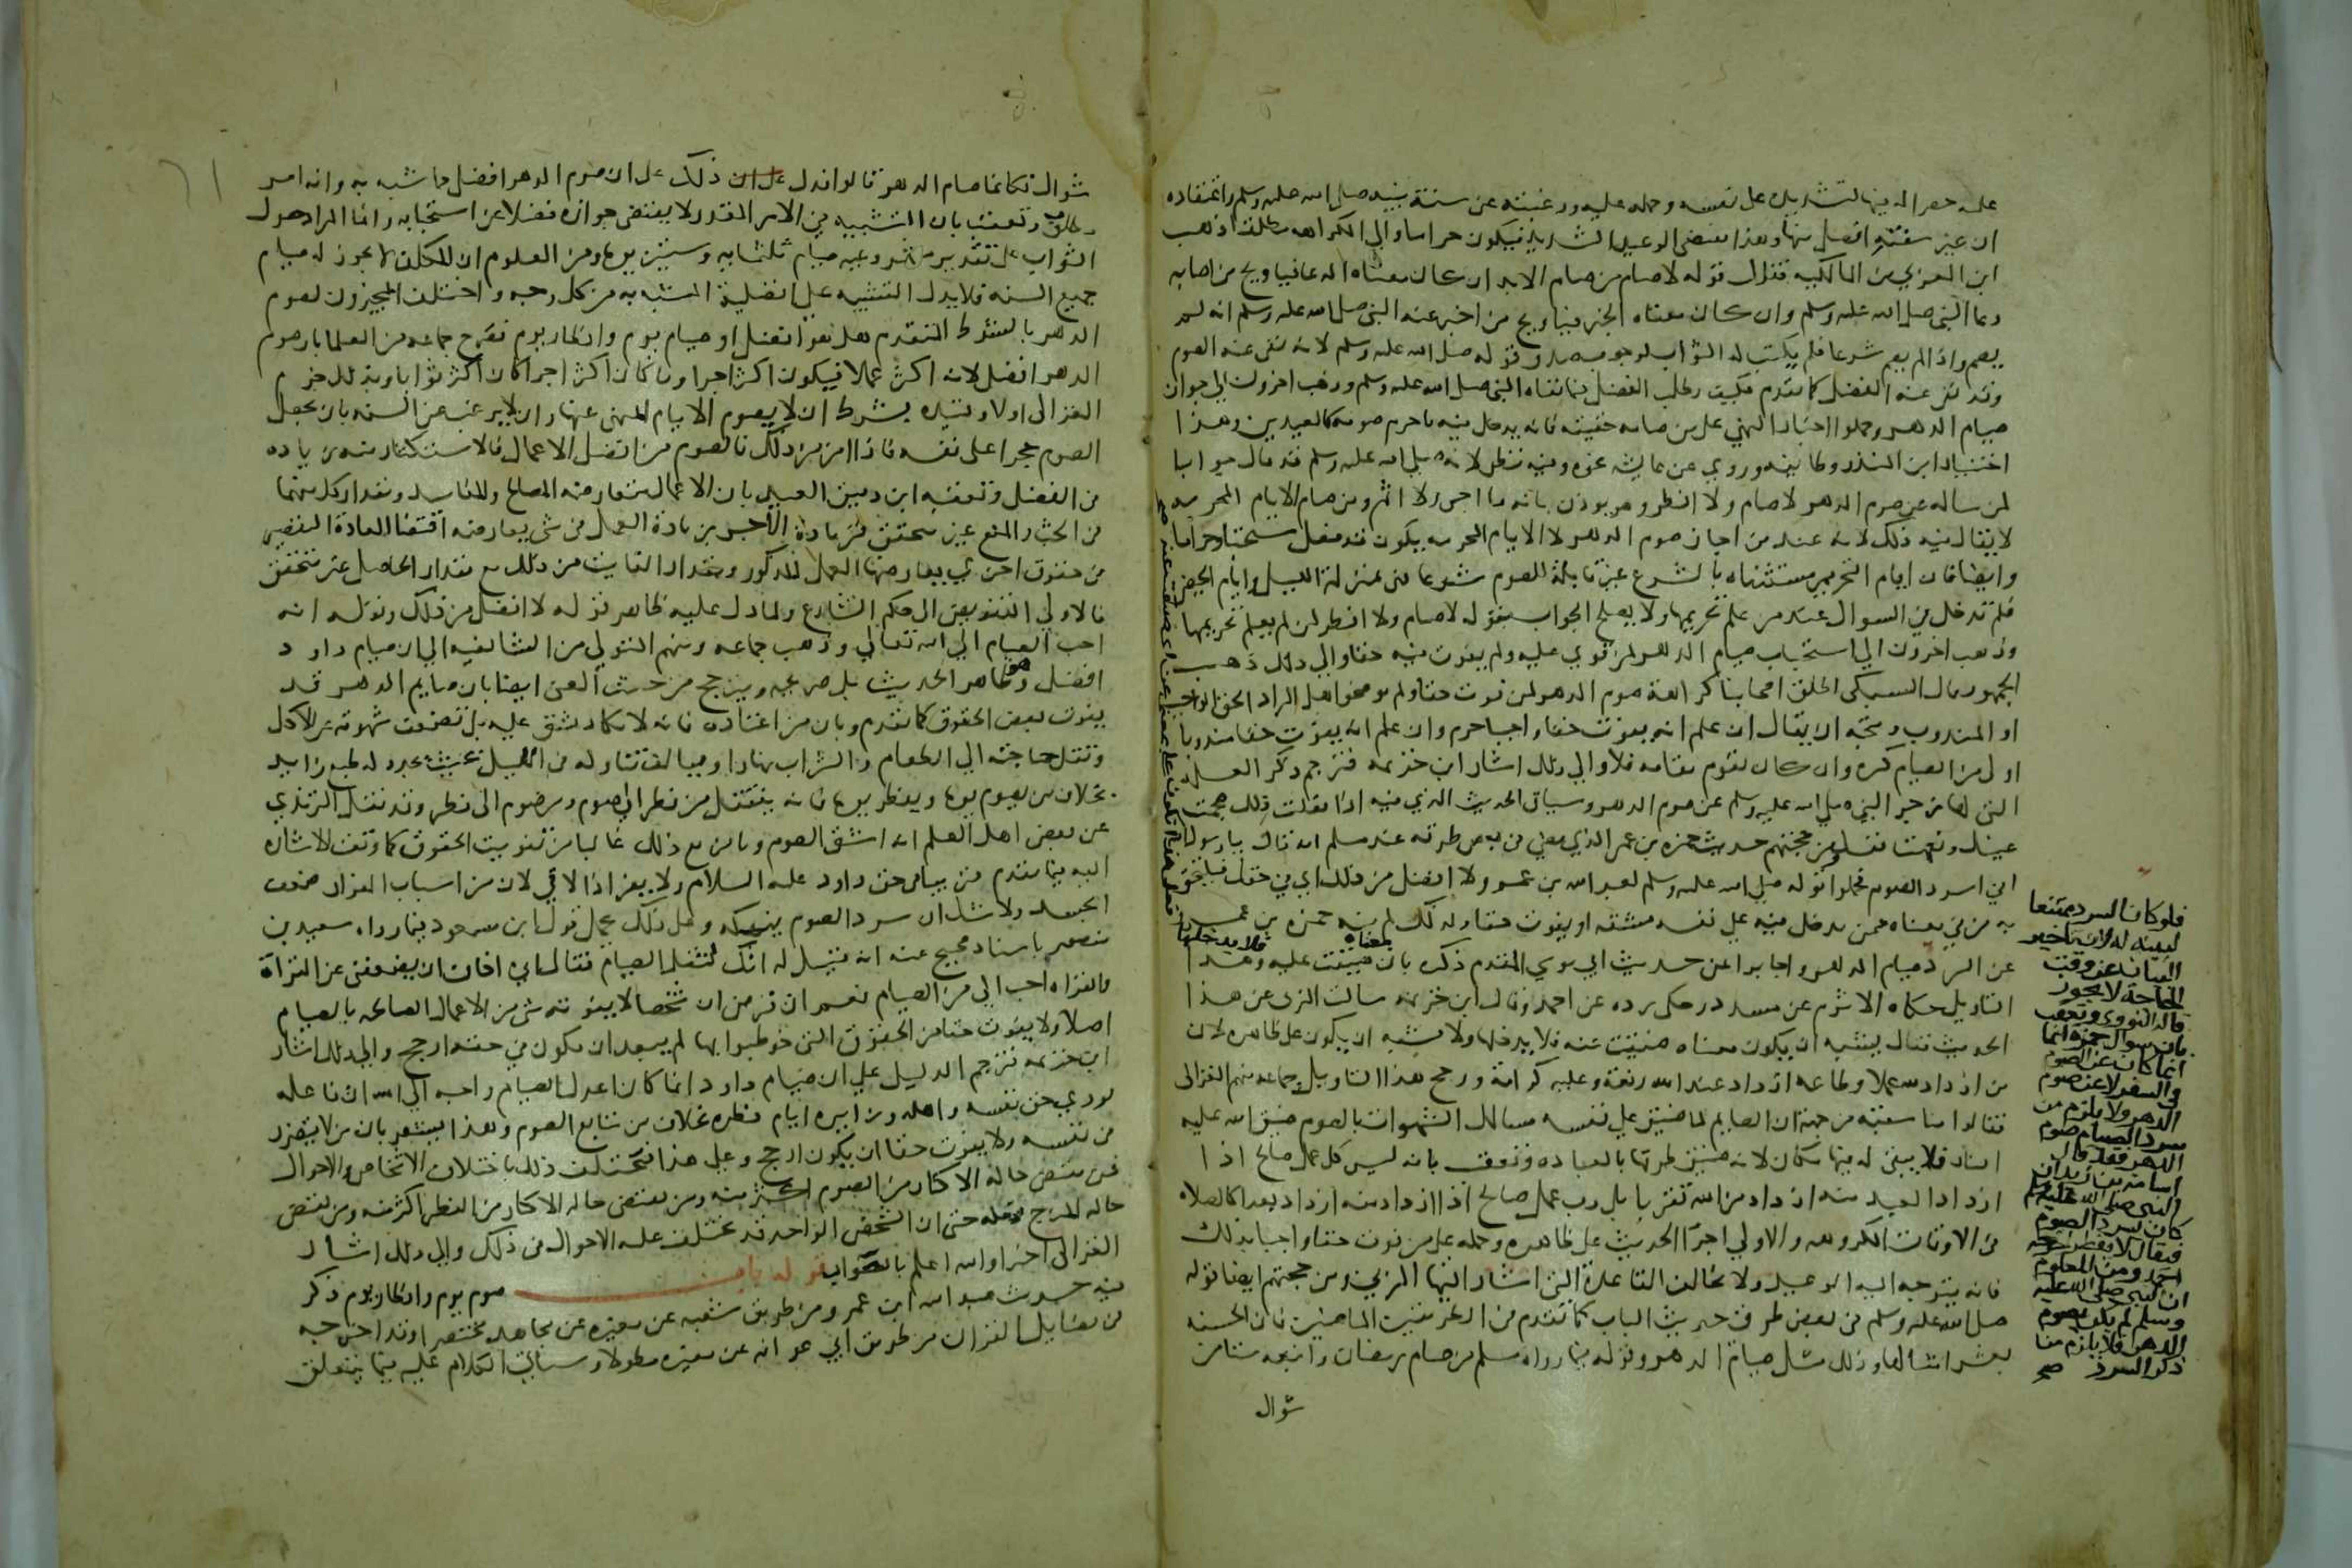 عليه حصر اله فيها لتشديده على نفسه وحمله عليه ورغبته عن سنة نبيه صلى الله عليه وسلم واعتقاده
ان غير سنته افضل منها وهذا يقتضي الوعيد الشديد فيكون حراما والى الكراهه مطلقا ذهب
ابن العربي من المالكيه فقال قوله لا صام من صام الابد ان كان معناه الدعا فيا ويح من اصابه
دعا النبي صلى الله عليه وسلم وان كان معناه الخبر فيا ويح من اخبر عنه النبي صلى الله عليه وسلم انه لم
يصم واذا لم يصم شرعا فلم يكتب له الثواب لوجوب صدق قوله صلى الله عليه وسلم لانه نفى عنه الصوم
وقد نفى عنه الفضل كما تقدم فكيف يطلب الفضل فيما نفاه النبي صلى الله عليه وسلم وذهب اخرون الى جواز
صيام الدهر وحملوا اخبار النهي على من صامه حقيقة فانه يدخل فيه ما حرم صومه كالعيدين وهذا
اختيار ابن المنذر وطايفه وروي عن عايشه نحوه وفيه نظر لانه صلى الله عليه وسلم قد قال جوابا
لمن ساله عن صوم الدهر لا صام ولا افطر وهو يوذن بانه ما اجر ولا اثم ومن صام الايام المحرمه
لا يقال فيه ذلك لانه عند من اجاز صوم الدهر الا الايام المحرمه يكون قد فعل مستحبا وحراما
وايضا فان ايام التحريم مستثناه بالشرع غير قابلة للصوم شرعا فهي بمنزلة الليل وايام الحيض
فلم تدخل في السوال عند من علم تحريمها ولا يصلح الجواب بقوله لا صام ولا افطر لمن لم يعلم تحريمها
وذهب اخرون الى استحباب صيام الدهر لمن قوي عليه ولم يفوت فيه حقا والى ذلك ذهب
الجمهور قال السبكي اطلق اصحابنا كراهة صوم الدهر لمن فوت حقا ولم يوضحوا هل المراد الحق الواجب
او المندوب ويتجه ان يقال ان علم انه يفوت حقا واجبا حرم وان علم انه يفوت حقا مندوبا
اولى من الصيام كره وان كان يقوم مقامه فلا والى ذلك اشار ابن خزيمه فترجم ذكر العله
التي لها زجر النبي صلى الله عليه وسلم عن صوم الدهر وساق الحديث الذي فيه اذا فعلت ذلك هجمت
عينك ونفهت نفسك ومن حجتهم حديث حمزه بن عمر الذي مضى فان في بعض طرقه عند مسلم انه قال يا رسول الله
اني اسرد الصوم فحملوا قوله صلى الله عليه وسلم لعبد الله بن عمرو لا افضل من ذلك اي في حقك فيلتحق
به من في معناه ممن يدخل فيه على نفسه مشقه او يفوت حقا ولذلك لم ينه حمزه بن عمرو
عن السرد
فلو كان السرد ممتنعا
لبينه له لان تاخير
البيان عن وقت
الحاجة لا يجوز
قاله النووي وتعقب
بان سوال حمزه انما
كان عن الصوم
في السفر لا عن صوم
الدهر ولا يلزم من
سرد الصيام صوم
الدهر فقد قال
اسامه بن زيد ان
النبي صلى الله عليه وسلم
كان يسرد الصوم
فيقال لا يفطر اخرجه
احمد ومن المعلوم
ان النبي صلى الله عليه
وسلم لم يكن يصوم
الدهر فلا يلزم من
ذكر السرد صح
صيام الدهر واجابوا عن حديث ابي موسى المقدم ذكره بان معناه ضيقت عليه فلا يدخلها وهذا
التاويل حكاه الاثرم عن مسدد وحكى رده عن احمد وقال ابن خزيمه سالت المزني عن هذا
الحديث فقال يشبه ان يكون معناه ضيقت عنه فلا يدخلها ولا يشبه ان يكون على ظاهره لان
من ازداد لله عملا وطاعه ازداد عند الله رفعة وعليه كرامة ورجح هذا التاويل جماعه منهم الغزالي
فقالوا مناسبته من جهة ان الصايم لما ضيق على نفسه مسالك الشهوات بالصوم ضيق الله عليه
النار فلا يبقى له فيها مكان لانه ضيق طرقها بالعباده وتعقب بانه ليس كل عمل صالح اذا
ازداد العبد منه ازداد من الله تقربا بل رب عمل صالح اذا ازداد منه ازداد بعدا كالصلاه
في الاوقات المكروهه والاولى اجرا الحديث على ظاهره وحمله على من فوت حقا واجبا بذلك
فانه يتوجه اليه الوعيد ولا يخالف القاعدة التي اشار اليها المزني ومن حجتهم ايضا قوله
صلى الله عليه وسلم في بعض طرق حديث الباب كما تقدم في الطريقين الماضيتين فان الحسنه
بعشر امثالها وذلك مثل صيام الدهر وقوله فيما رواه مسلم من صام رمضان واتبعه ستا من
شوال
شوال فكانما صام الدهر قالوا فدل ذلك على ان صوم الدهر افضل مما شبه به وانه امر
مطلوب وتعقب بان التشبيه في الامر المقدر لا يقتضي جوازه فضلا عن استحبابه وانما المراد حصول
الثواب على تقدير مشروعيه صيام ثلثمايه وستين يوما ومن المعلوم ان المكلف لا يجوز له صيام
جميع السنه فلا يدل التشبيه على افضلية المشبه به من كل وجه واختلف المجيزون لصوم
الدهر بالشرط المتقدم هل هو افضل او صيام يوم وافطار يوم فصرح جماعه من العلما بان صوم
الدهر افضل لانه اكثر عملا فيكون اكثر اجرا وما كان اكثر اجرا كان اكثر ثوابا وبذلك جزم
الغزالي اولا وقيده بشرط ان لا يصوم الايام المنهي عنها وان لا يرغب عن السنه بان يجعل
الصوم حجرا على نفسه فاذا امن من ذلك فالصوم من افضل الاعمال فالاستكثار منه زياده
في الفضل وتعقبه ابن دقيق العيد بان الاعمال متعارضة المصالح والمفاسد ومقدار كل منهما
في الحث والمنع غير متحقق فزيادة الاجر بزيادة العمل في شي يعارضه اقتضا العادة التقصير
في حقوق اخرى يعارضها العمل المذكور ومقدار الفايت من ذلك مع مقدار الحاصل غير متحقق
فالاولى التفويض الى حكم الشارع ولما دل عليه ظاهر قوله لا افضل من ذلك وقوله انه
احب الصيام الى الله تعالى وذهب جماعه ومنهم المتولي من الشافعيه الى ان صيام داود
افضل وهو ظاهر الحديث بل صريحه ويترجح من حيث المعنى ايضا بان صايم الدهر قد
يفوت بعض الحقوق كما تقدم وبان من اعتاده فانه لا يكاد يشق عليه بل تضعف شهوته عن الاكل
وتقل حاجته الى الطعام والشراب نهارا ويبالف تناوله في الليل بحيث يتجدد له طبع زايد
بخلاف من يصوم يوما ويفطر يوما فانه ينتقل من فطر الى صوم ومن صوم الى فطر وقد نقل الترمذي
عن بعض اهل العلم انه اشق الصوم ويامن مع ذلك غالبا من تفويت الحقوق كما وقعت الاشاره
اليه فيما تقدم في حق داود عليه السلام ولا يفر اذا لاقى لان من اسباب الفرار ضعف
الجسد ولا شك ان سرد الصوم ينهكه وعلى ذلك يحمل قول ابن مسعود فيما رواه سعيد بن
منصور باسناد صحيح عنه انه قيل له انك لتقل الصيام فقال اني اخاف ان يضعفني عن القراة
والقراه احب الي من الصيام نعم ان فرض ان شخصا لا يفوته شي من الاعمال الصالحه بالصيام
اصلا ولا يفوت حقا من الحقوق التي خوطب بها لم يبعد ان يكون في حقه ارجح والى ذلك اشار
ابن خزيمه فترجم الدليل على ان صيام داود انما كان اعدل الصيام واحبه الى الله ان فاعله
يودي حق نفسه واهله وزايره ايام فطره بخلاف من يتابع الصوم وهذا يشعر بان من لا يتضرر
في نفسه ولا يفوت حقا ان يكون ارجح وعلى هذا فيختلف ذلك باختلاف الاشخاص والاحوال
فمن يقتضي حاله الاكثار من الصوم اكثر منه ومن يقتضي حاله الاكثار من الفطر اكثر منه ومن يقتضي
حاله المزج فعله حتى ان الشخص الواحد قد تختلف عليه الاحوال في ذلك والى ذلك اشار
الغزالي اخيرا والله اعلم بالصواب قوله باب صوم يوم وافطار يوم ذكر
فيه حديث عبد الله ابن عمرو من طريق شعبه عن مغيره عن مجاهد مختصرا وقد اخرجه
في فضايل القران من طريق ابي عوانه عن مغيره مطولا وسياتي الكلام عليه فيما يتعلق